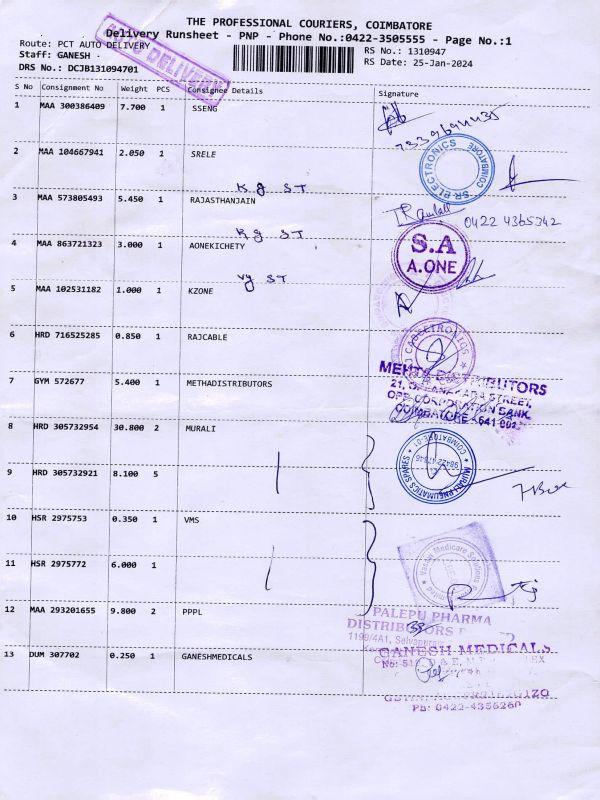 THE PROFESSIONAL COURIERS, COIMBATORE
Delivery Runsheet - PNP - Phone No.:0422-3505555 - Page No.:1
Route: PCT AUTO DELIVERY
RS No.: 1310947
Staff: GANESH
RS Date: 25-Jan-2024
DRS No.: DCJB131094701
AUTO DELIVERY
S No Consignment No Weight PCS Consignee Details Signature
1 MAA 300386409 7.700 1 SSENG
2 MAA 104667941 2.050 1 SRELE
SR ELECTRONICS COIMBATORE
Kg ST
3 MAA 573805493 5.450 1 RAJASTHANJAIN
0422 4365342
Kg ST
4 MAA 863721323 3.000 1 AONEKICHETY
S.A
A.ONE
Vy ST
5 MAA 102531182 1.000 1 KZONE
6 HRD 716525285 0.850 1 RAJCABLE
7 GYM 572677 5.400 1 METHADISTRIBUTORS
MEHTA DISTRIBUTORS
STREET,
OPP. CORPORATION BANK
COIMBATORE - 641 001
8 HRD 305732954 30.800 2 MURALI
MURALI PNEUMATICS SPARES
COIMBATORE
9 HRD 305732921 8.100 5
10 HSR 2975753 0.350 1 VMS
Medicare
11 HSR 2975772 6.000 1
12 MAA 293201655 9.800 2 PPPL
PALEPU PHARMA
DISTRIBUTORS
1199/4A1, Selvapuram
13 DUM 307702 0.250 1 GANESHMEDICALS
GANESH MEDICALS
Ph: 0422-4356260